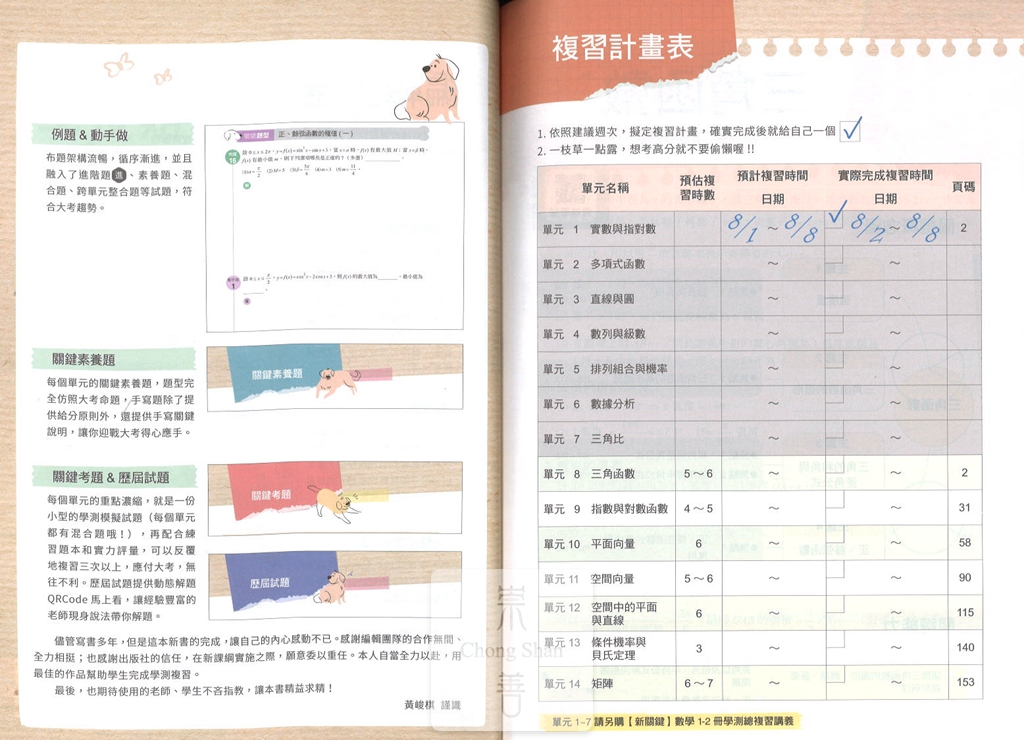 例題 & 動手做
布題架構流暢，循序漸進，並且
融入了進階題進、素養題、混
合題、跨單元整合題等試題，符
合大考趨勢。
正、餘弦函數的極值（一）
關鍵素養題
每個單元的關鍵素養題，題型完
全仿照大考命題，手寫題除了提
供給分原則外，還提供手寫關鍵
說明，讓你迎戰大考得心應手。
關鍵素養題
關鍵考題 & 歷屆試題
每個單元的重點濃縮，就是一份
小型的學測模擬試題（每個單元
都有混合題哦！），再配合練
習題本和實力評量，可以反覆
地複習三次以上，應付大考，無
往不利。歷屆試題提供動態解題
QRCode 馬上看，讓經驗豐富的
老師現身說法帶你解題。
關鍵考題
歷屆試題
儘管寫書多年，但是這本新書的完成，讓自己的內心感動不已。感謝編輯團隊的合作無間、
全力相挺；也感謝出版社的信任，在新課綱實施之際，願意委以重任。本人自當全力以赴，用
最佳的作品幫助學生完成學測複習。
最後，也期待使用的老師、學生不吝指教，讓本書精益求精！
黃峻棋 謹識
複習計畫表
1. 依照建議週次，擬定複習計畫，確實完成後就給自己一個 ✓
2. 一枝草一點露，想考高分就不要偷懶喔!!
單元名稱 預估複習時數 預計複習時間 日期 實際完成複習時間 日期 頁碼
單元 1 實數與指對數 8/1 ～ 8/8 ✓ 8/2 ～ 8/8 2
單元 2 多項式函數 ～ ～
單元 3 直線與圓 ～ ～
單元 4 數列與級數 ～ ～
單元 5 排列組合與機率 ～ ～
單元 6 數據分析 ～ ～
單元 7 三角比 ～ ～
單元 8 三角函數 5～6 ～ ～ 2
單元 9 指數與對數函數 4～5 ～ ～ 31
單元 10 平面向量 6 ～ ～ 58
單元 11 空間向量 5～6 ～ ～ 90
單元 12 空間中的平面與直線 6 ～ ～ 115
單元 13 條件機率與貝氏定理 3 ～ ～ 140
單元 14 矩陣 6～7 ～ ～ 153
單元 1~7 請另購【新關鍵】數學 1-2 冊學測總複習講義
崇
Chong Shan
善